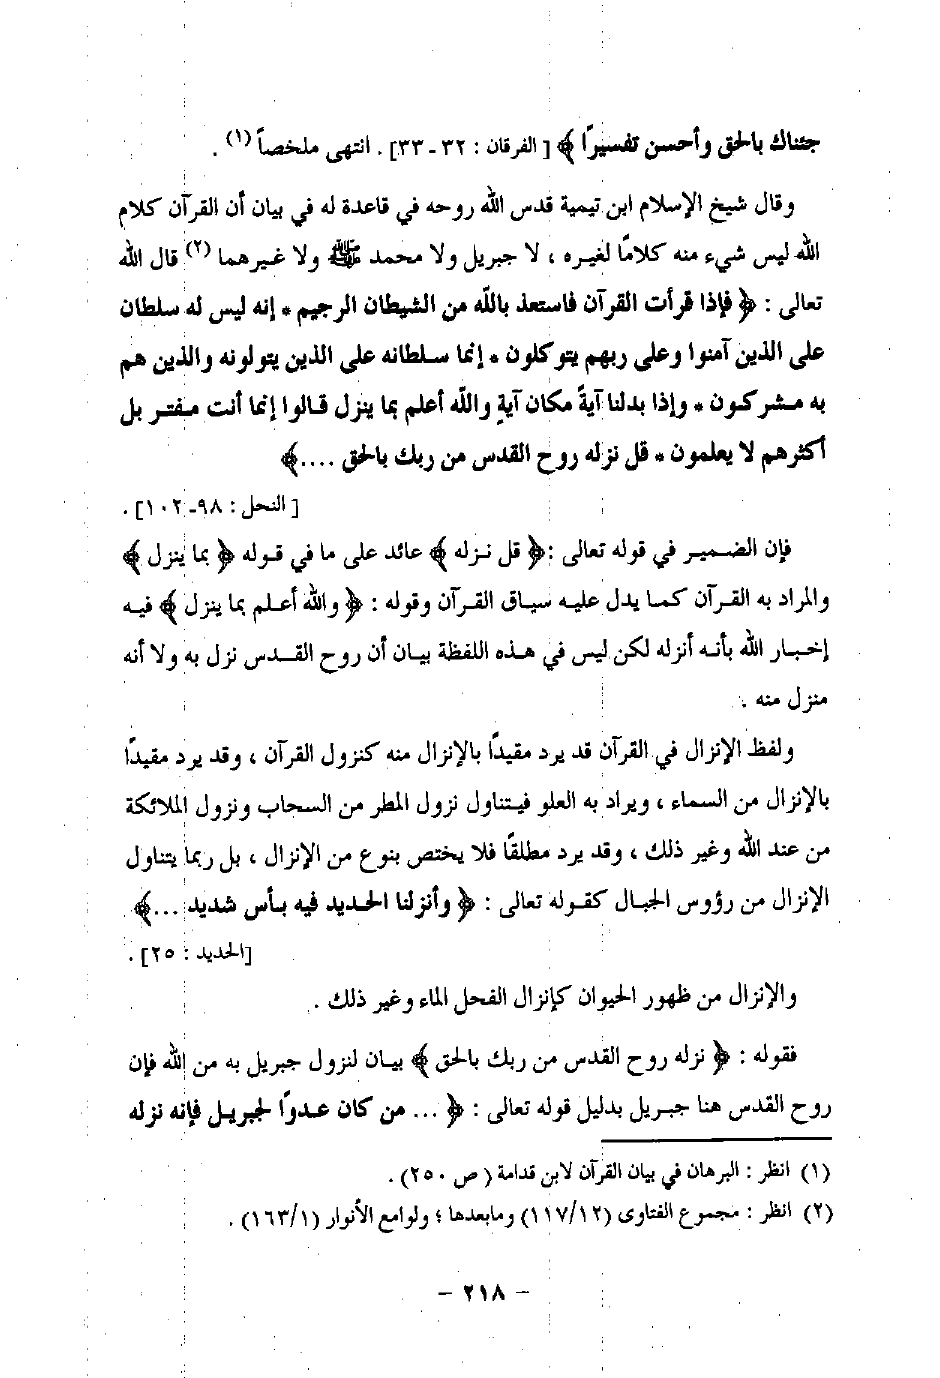 جئناك بالحق وأحسن تفسيرًا ﴾ [ الفرقان : ٣٢ ـ ٣٣] . انتهى ملخصاً (١) .
وقال شيخ الإسلام ابن تيمية قدس الله روحه في قاعدة له في بيان أن القرآن كلام
الله ليس شيء منه كلامًا لغيره ، لا جبريل ولا محمد ﷺ ولا غيرهما (٢) قال الله
تعالى : ﴿ فإذا قرأت القرآن فاستعذ بالله من الشيطان الرجيم * إنه ليس له سلطان
على الذين آمنوا وعلى ربهم يتوكلون * إنما سلطانه على الذين يتولونه والذين هم
به مشركون * وإذا بدلنا آيةً مكان آيةٍ والله أعلم بما ينزل قالوا إنما أنت مفتر بل
أكثرهم لا يعلمون * قل نزله روح القدس من ربك بالحق ....﴾
[ النحل : ٩٨ـ ١٠٢] .
فإن الضمير في قوله تعالى :﴿ قل نزله ﴾ عائد على ما في قوله ﴿ بما ينزل ﴾
والمراد به القرآن كما يدل عليه سياق القرآن وقوله : ﴿ والله أعلم بما ينزل ﴾ فيه
إخبار الله بأنه أنزله لكن ليس في هذه اللفظة بيان أن روح القدس نزل به ولا أنه
منزل منه .
ولفظ الإنزال في القرآن قد يرد مقيدًا بالإنزال منه كنزول القرآن ، وقد يرد مقيدًا
بالإنزال من السماء ، ويراد به العلو فيتناول نزول المطر من السحاب ونزول الملائكة
من عند الله وغير ذلك ، وقد يرد مطلقًا فلا يختص بنوع من الإنزال ، بل ربما يتناول
الإنزال من رؤوس الجبال كقوله تعالى : ﴿ وأنزلنا الحديد فيه بأس شديد ...﴾
[الحديد : ٢٥] .
والإنزال من ظهور الحيوان كإنزال الفحل الماء وغير ذلك .
فقوله : ﴿ نزله روح القدس من ربك بالحق ﴾ بيان لنزول جبريل به من الله فإن
روح القدس هنا جبريل بدليل قوله تعالى : ﴿ ... من كان عدوًا لجبريل فإنه نزله
(١) انظر : البرهان في بيان القرآن لابن قدامة ( ص ٢٥٠) .
(٢) انظر : مجموع الفتاوى (١١٧/١٢) ومابعدها ؛ ولوامع الأنوار (١٦٣/١) .
- ٢١٨ -